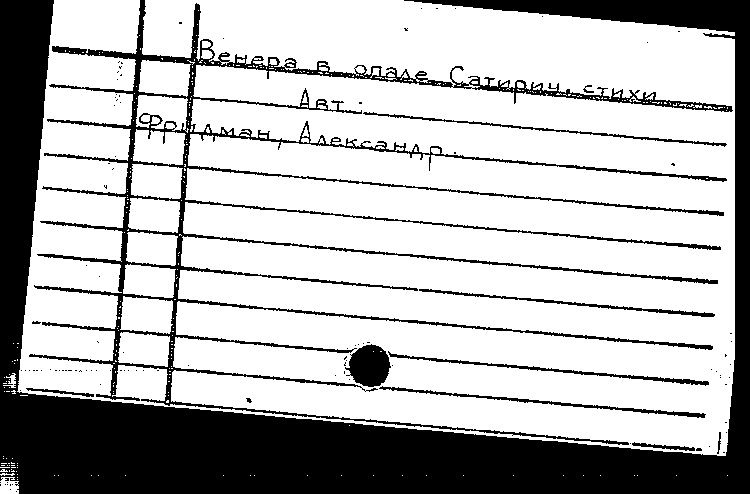 Венера в опале. Сатирич. стихи
Авт.:
Фридман, Александр.